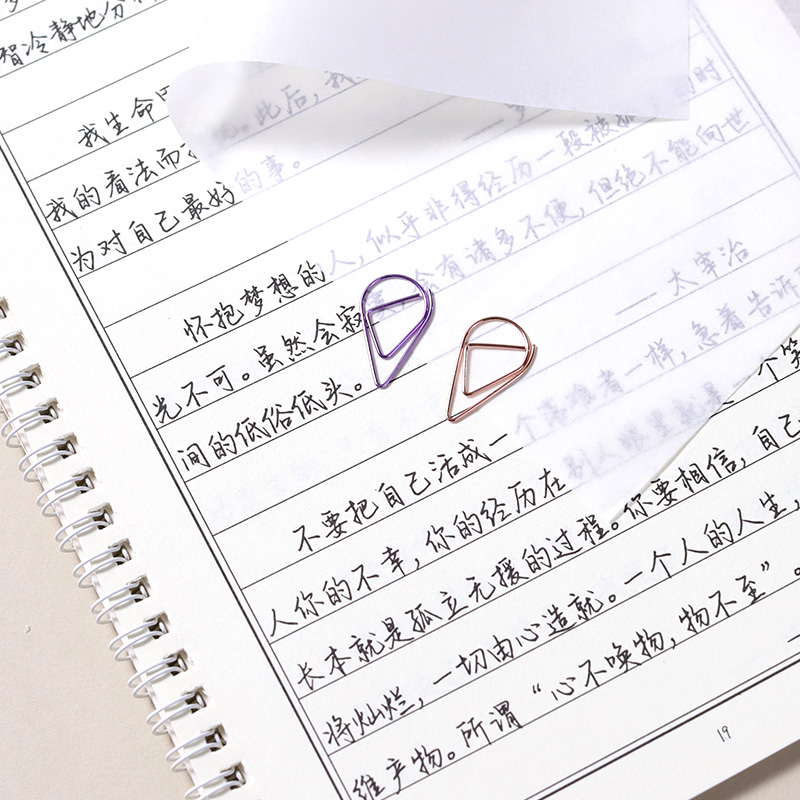 智冷静地分
我生命 。此后，我
我的看法而 的事。
为对自己最好
怀抱梦想的人，似乎非得经历一段被孤 的时
光不可。虽然会寂 会有诸多不便，但绝不能向世
间的低俗低头。
—— 太宰治
不要把自己活成一个落难者一样，急着告诉
人你的不幸，你的经历在别人眼里就是 个笑
长本就是孤立无援的过程。你要相信，自己
将灿烂，一切由心造就。一个人的人生，
维产物。所谓“心不唤物，物不至”。
19